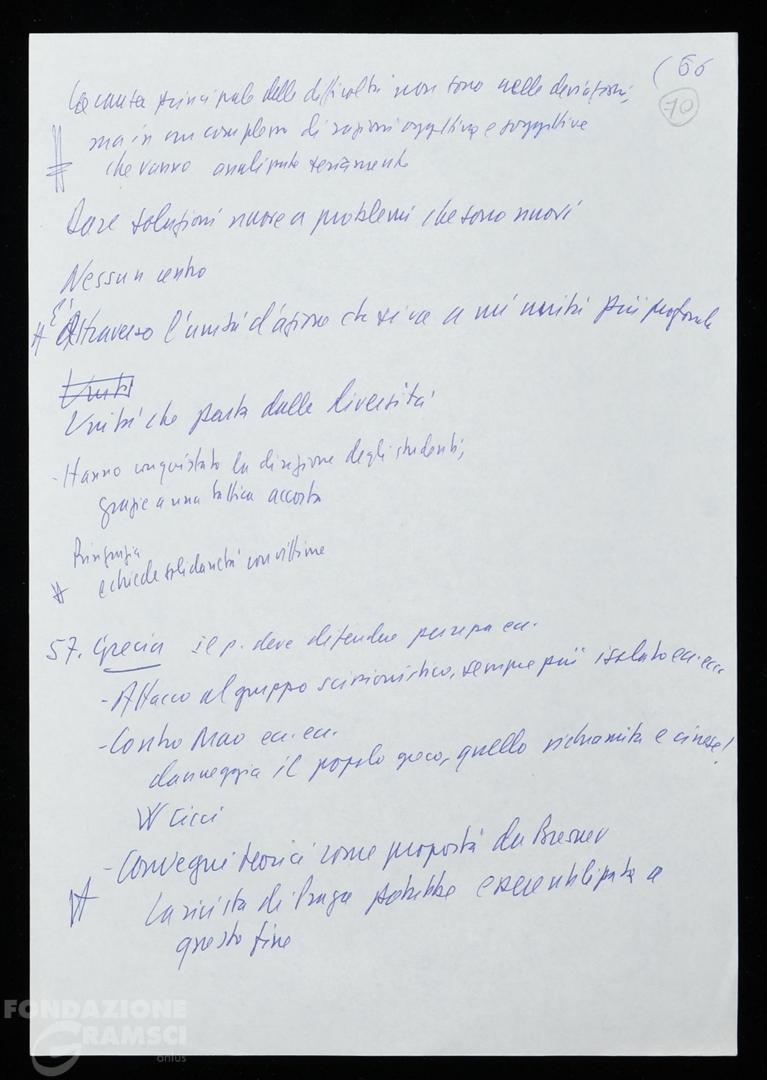 (66
70
La causa principale delle difficoltà non sono nelle deviazioni,
ma in un complesso di ragioni oggettive e soggettive
che vanno analizzate seriamente
Dare soluzioni nuove a problemi che sono nuovi
Nessun centro
È attraverso l'unità d'azione che si va a un' unità più profonda
Unità
Unità che parta dalle diversità
- Hanno conquistato la direzione degli studenti,
grazie a una tattica accorta
Ringrazia
e chiede solidarietà con vittime
57. Grecia il p. deve difendere purezza ecc.
- Attacco al gruppo scissionistico, sempre più isolato ecc. ecc.
- Contro Mao ecc. ecc.
danneggia il popolo greco, quello vietnamita e cinese!
W
- Convegni teorici come proposta da Bresnev
La rivista di Praga potrebbe essere utilizzata a
questo fine
FONDAZIONE
GRAMSCI
onlus